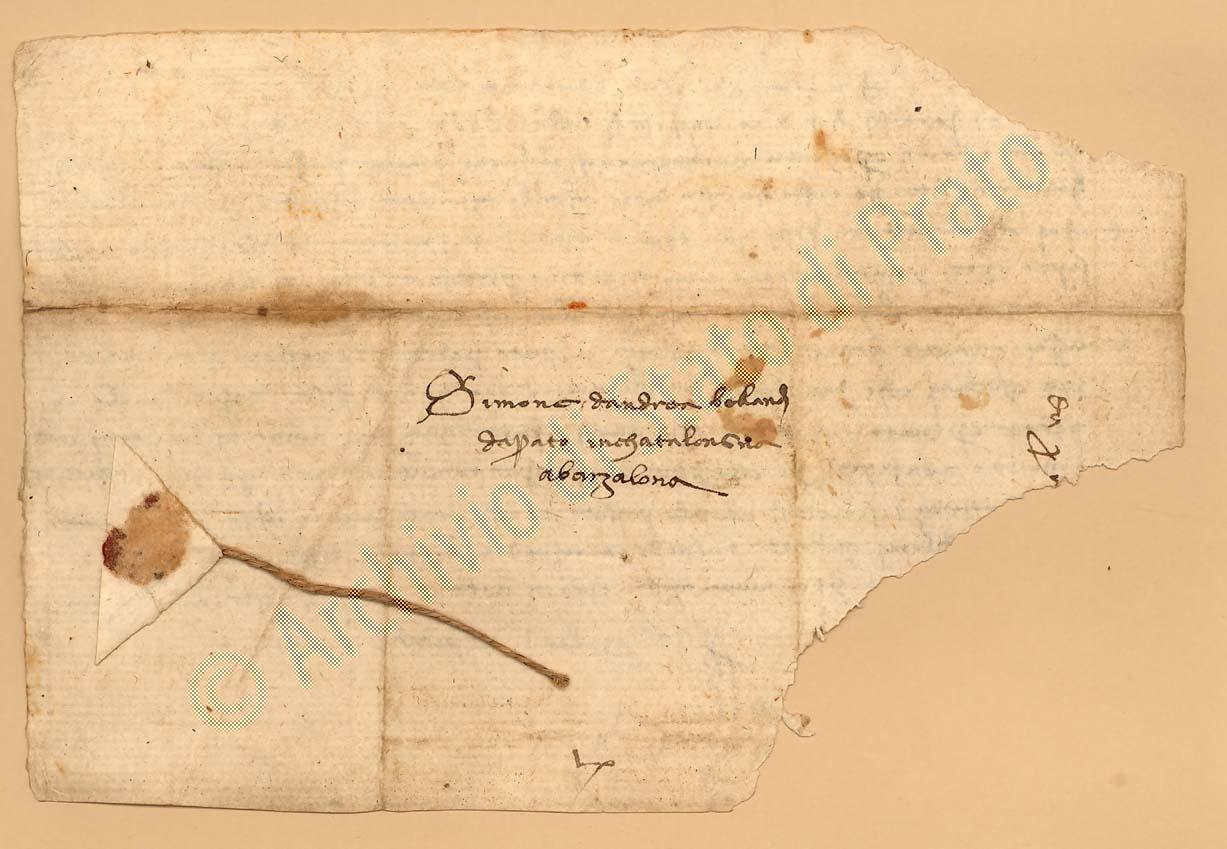 Simone d'andrea bellandj
da prato in chatalongna
a barzalona
© Archivio di Stato di Prato